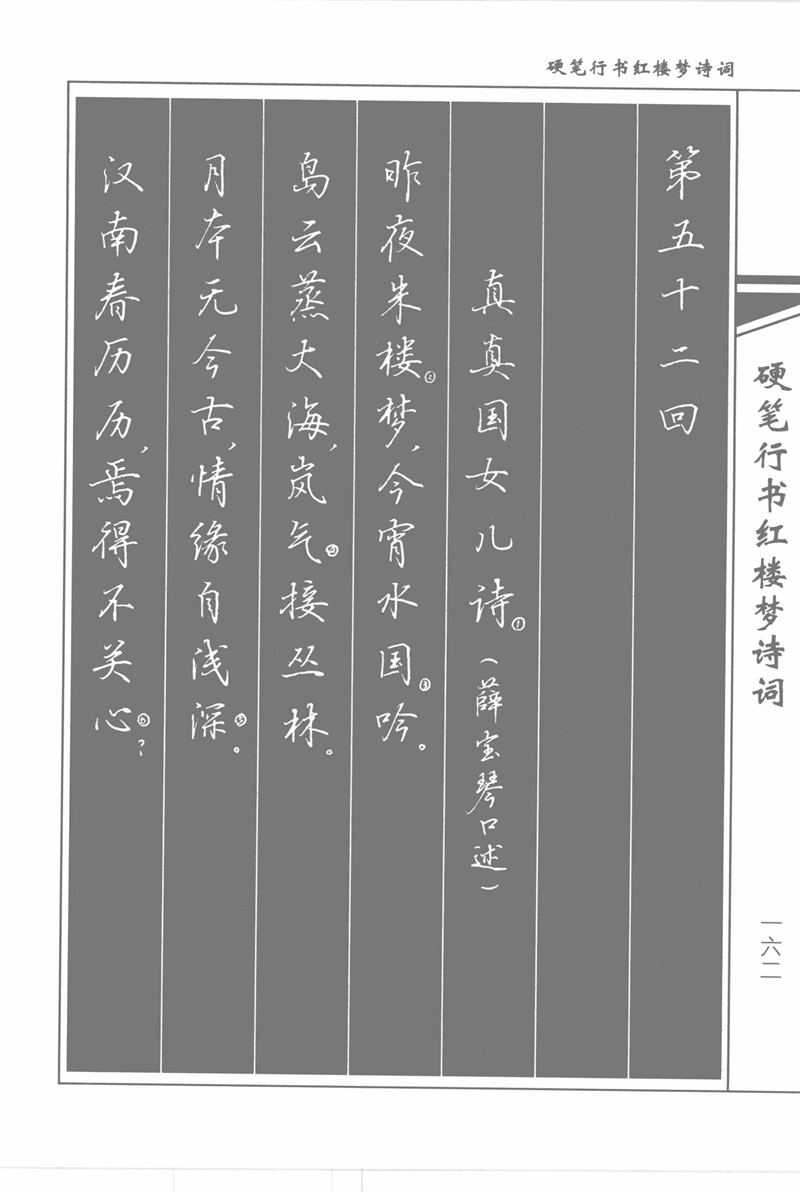 硬笔行书红楼梦诗词
第五十二回
真真国女儿诗①（薛宝琴口述）
昨夜朱楼②梦，今宵水国③吟。
岛云蒸大海，岚气④接丛林。
月本无今古，情缘自浅深⑤。
汉南春历历，焉得不关心⑥？
硬笔行书红楼梦诗词
一六二